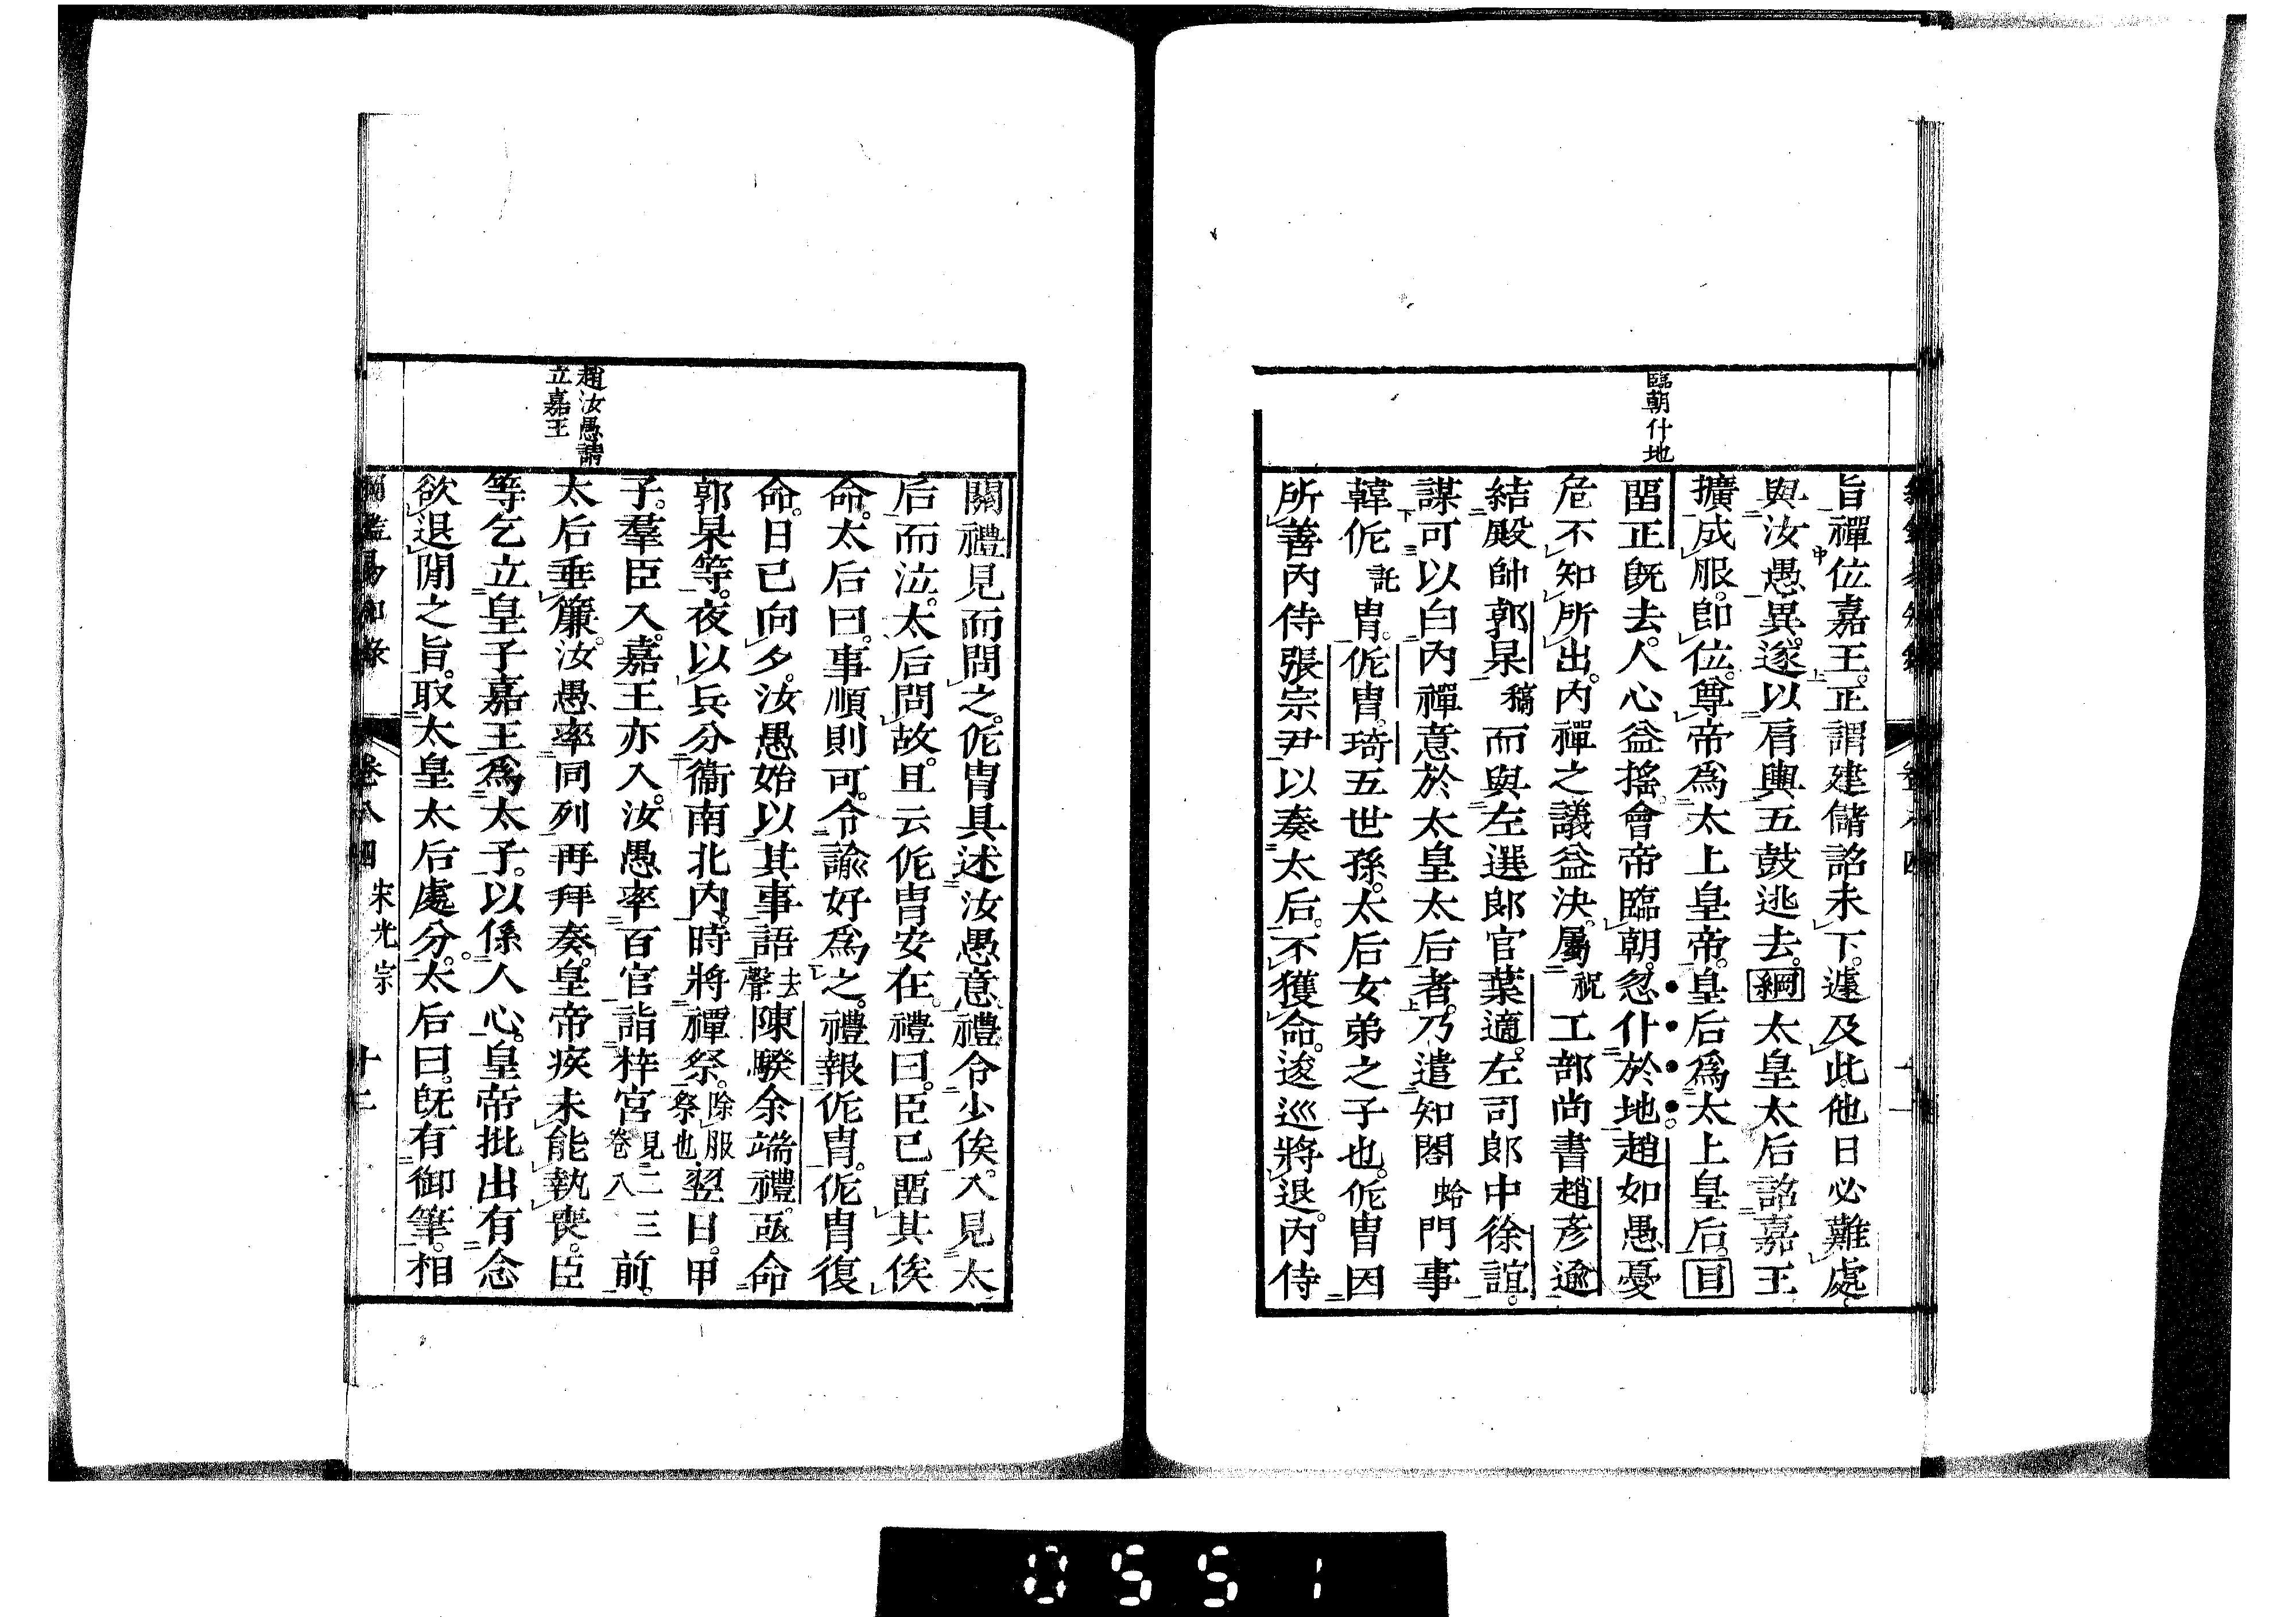 臨朝仆地
旨禪位嘉王。正謂建儲詔未下。遽及此。他日必難處。
與汝愚異。遂以肩輿五鼓逃去。綱太皇太后詔嘉王
擴成服。卽位。尊帝爲太上皇帝。皇后爲太上皇后。目
畱正旣去。人心益搖。會帝臨朝。忽仆於地。趙如愚憂
危不知所出。內禪之議益決。屬祝工部尚書趙彥逾
結殿帥郭杲稿而與左選郞官葉適。左司郞中徐誼。
謀可以白內禪意於太皇太后者。乃遣知閤蛤門事
韓侂託冑。侂冑。琦五世孫。太后女弟之子也。侂冑因
所善內侍張宗尹以奏太后。不獲命。逡巡將退。內侍
趙汝愚請
立嘉王
關禮見而問之。侂冑具述汝愚意。禮令少俟。入見太
后而泣。太后問故。且云侂冑安在。禮曰。臣已畱其俟
命。太后曰。事順則可。令諭好爲之。禮報侂冑。侂冑復
命。日已向夕。汝愚始以其事語去聲陳騤余端禮。亟命
郭杲等。夜以兵分衞南北內。時將禫祭。除服祭也翌日。甲
子。羣臣入。嘉王亦入。汝愚率百官詣梓宮見二三卷八前。
太后垂簾。汝愚率同列再拜奏。皇帝疾未能執喪。臣
等乞立皇子嘉王爲太子。以係人心。皇帝批出有念
欲退閒之旨。取太皇太后處分。太后曰。旣有御筆。相
綱鑑易知錄 卷八四 宋光宗 十二
0551